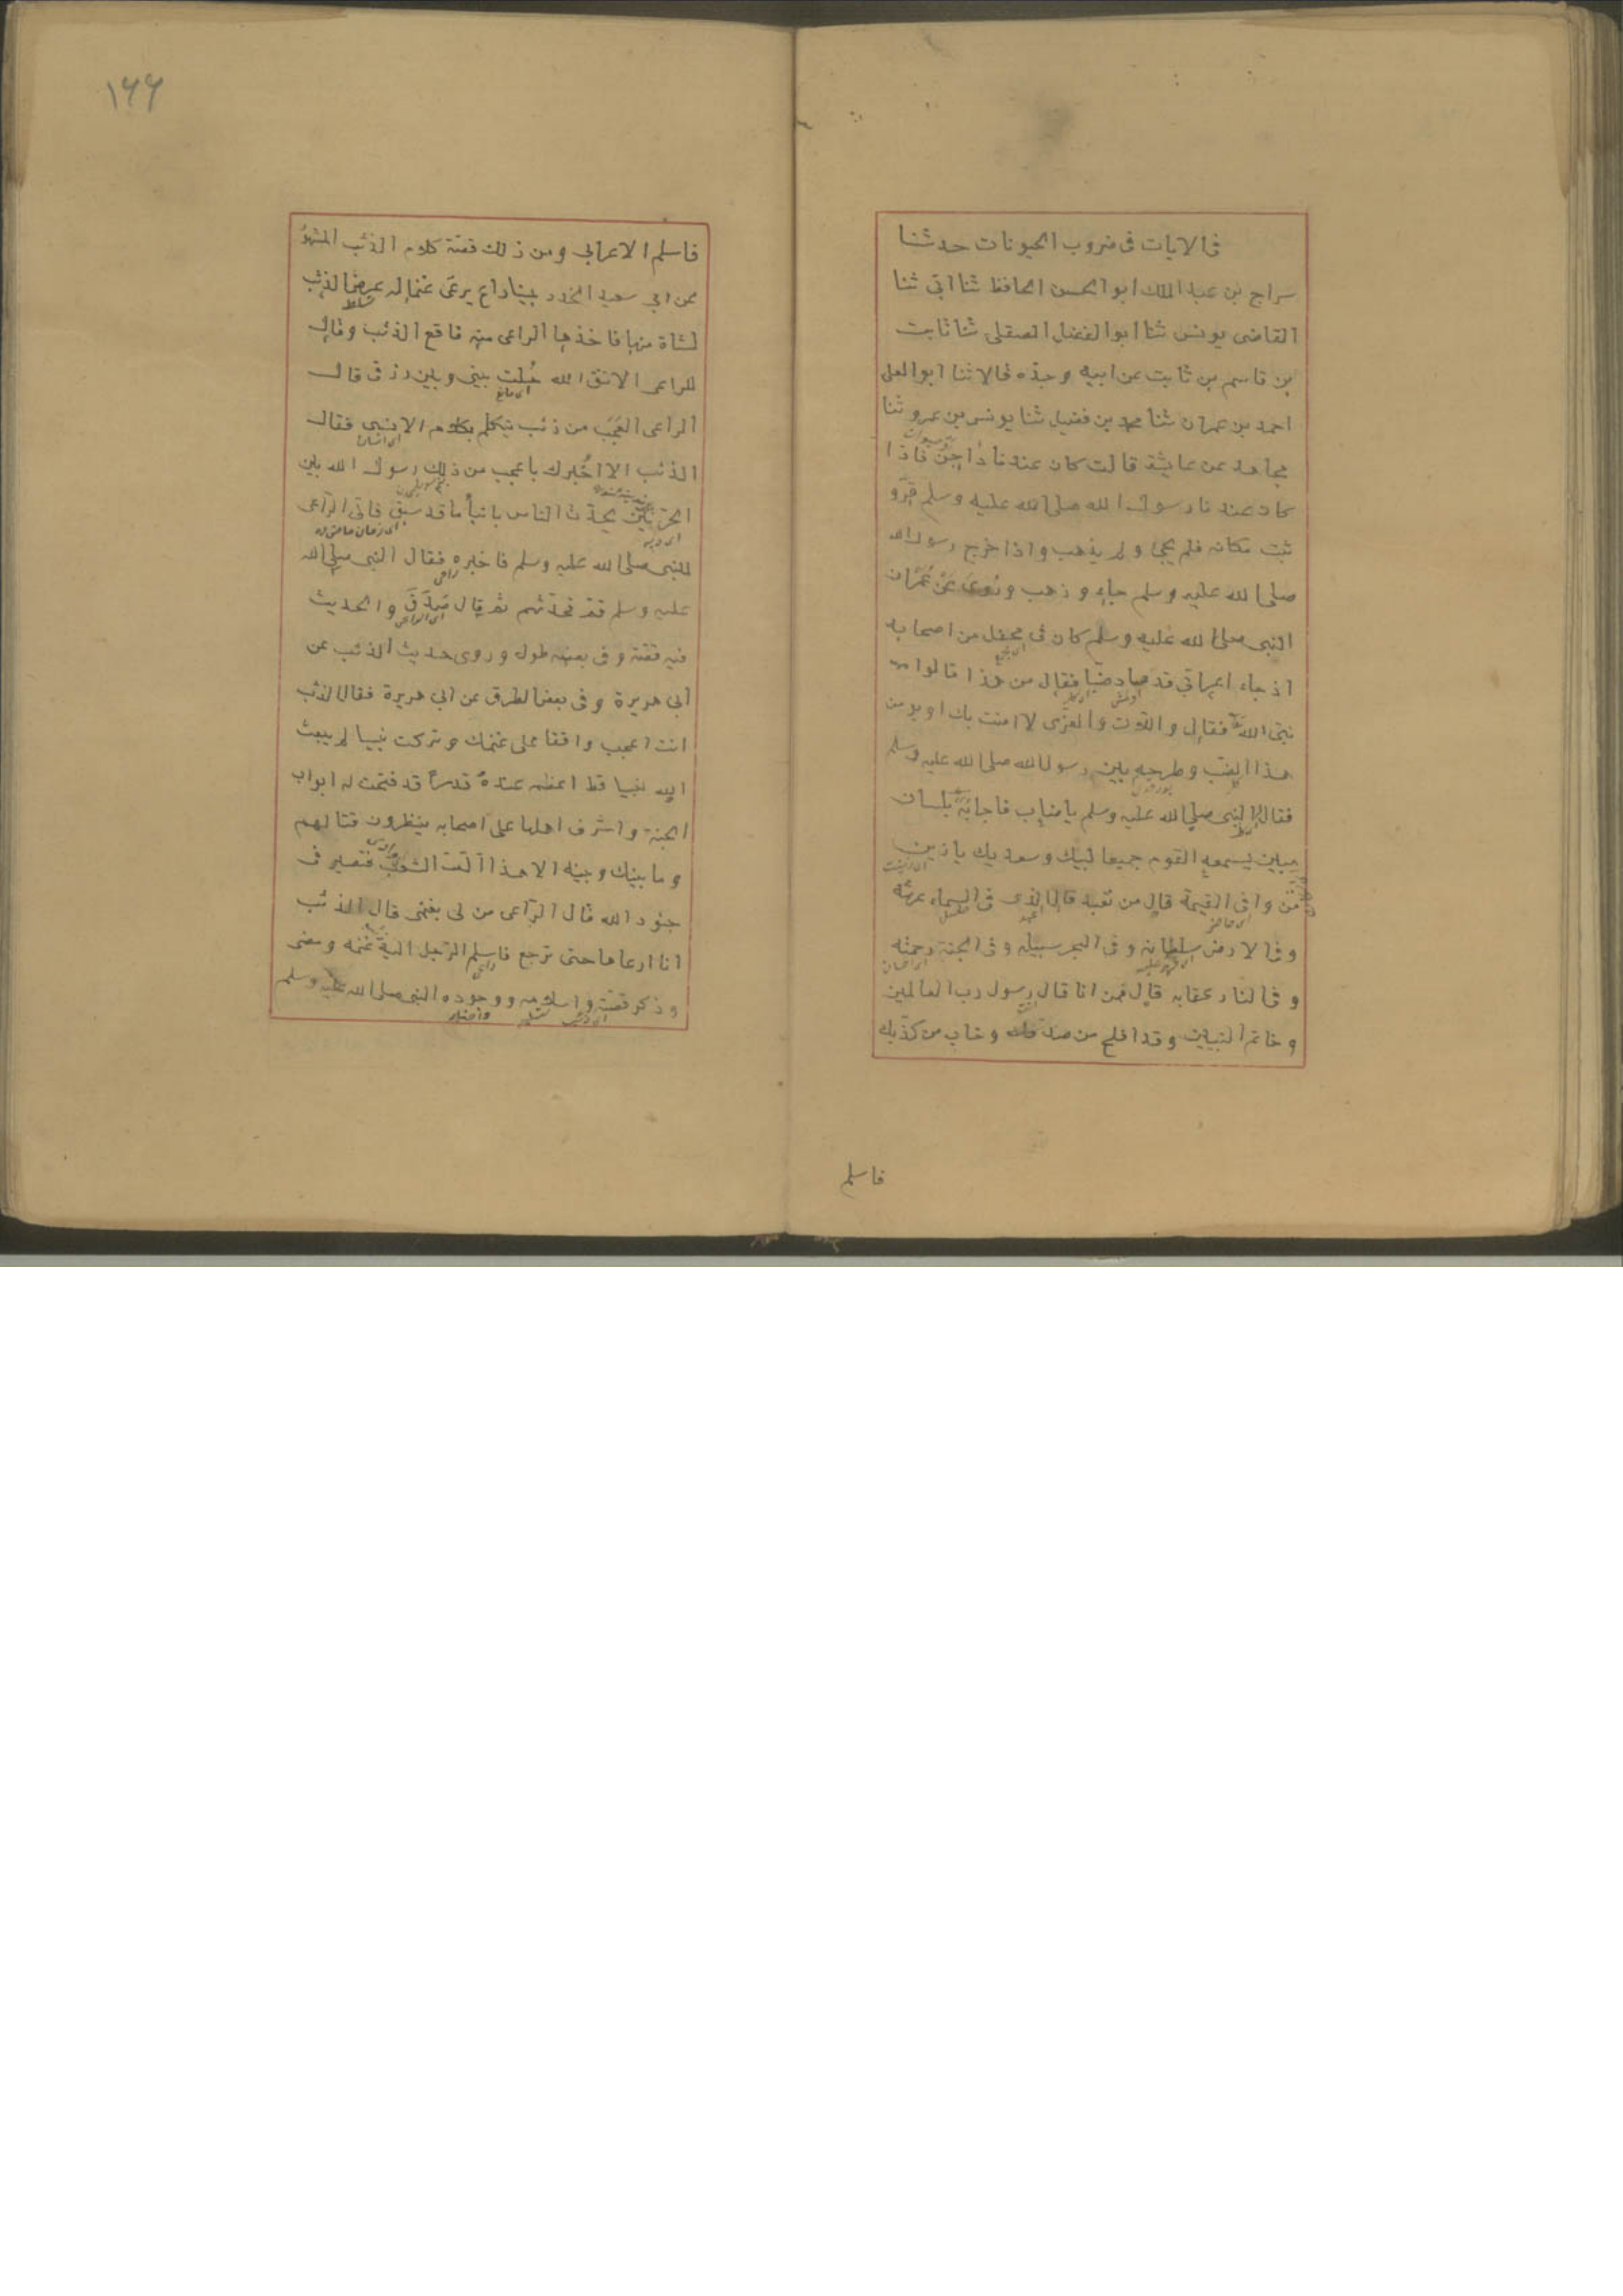 فى الايات فى ضروب الحيونات حدثنا
سراج بن عبد الملك ابو الحسن الحافظ ثنا ابى ثنا
القاضى يونس ثنا ابو الفضل الصقلى ثنا ثابت
بن قاسم بن ثابت عن ابيه وجده قالا ثنا ابو العلى
احمد بن عمران ثنا محمد بن فضيل ثنا يونس بن عمرو ثنا
مجاهد عن عايشة قالت كان عندنا داجن فاذا
كان عندنا رسول الله صلى الله عليه وسلم قرّ و
ثبت مكانه فلم يجئ ولم يذهب واذا خرج رسول الله
صلى الله عليه وسلم جاء وذهب وروى عن عمر ان
النبى صلى الله عليه وسلم كان فى محفل من اصحابه
اذ جاء اعرابى قد صاد ضبا فقال من هذا قالوا
نبى الله فقال واللات والعزى لا امنت بك او يومن
هذا الضب وطرحه بين رسول الله صلى الله عليه وسلم
فقال النبى صلى الله عليه وسلم يا ضب فاجابه بلسان
مبين يسمعه القوم جميعا لبيك وسعديك يا زين
من وافى القيمة قال من تعبد قال الذى فى السماء عرشه
وفى الارض سلطانه وفى البحر سبيله وفى الجنة رحمته
وفى النار عقابه قال فمن انا قال رسول رب العالمين
وخاتم النبيين وقد افلح من صدقك وخاب من كذبك
فاسلم
١٦٦
فاسلم الاعرابى ومن ذلك قصة كلام الذئب المشهو
عن ابى سعيد الخدر بينا راع يرعى غنما له عرض الذئب
لشاة منها فاخذها الراعى منه فاقع الذئب وقال
للراعى الا تتق الله حُلت بينى وبين رزقى قال
الراعى العجب من ذئب يتكلم بكلام الانس فقال
الذئب الا اخبرك باعجب من ذلك رسول الله بين
الحرتين يحدث الناس بانبأ ما قد سبق فاتى الراعى
النبى صلى الله عليه وسلم فاخبره فقال النبى صلى الله
عليه وسلم قم فحدثهم ثم قال صدق والحديث
فيه قصة وفى بعضه طول وروى حديث الذئب عن
ابى هريرة وفى بعض الطرق عن ابى هريرة فقال الذئب
انت اعجب واقفا على غنمك وتركت نبيا لم يبعث
الله نبيا قط اعظم عنده قدرا قد فتحت له ابواب
الجنة واشرف اهلها على اصحابه ينظرون قتالهم
وما بينك وبينه الا هذا الشعب فتصير فى
جنود الله قال الراعى من لى بغنمى قال الذئب
انا ارعاها حتى ترجع فاسلم الرجل اليه غنمه ومضى
وذكر قصته واسلامه ووجوده النبى صلى الله عليه وسلم